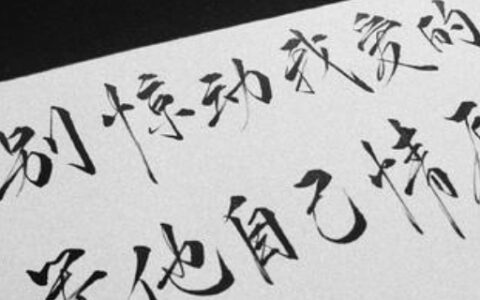 别惊动我爱的
等他自己情